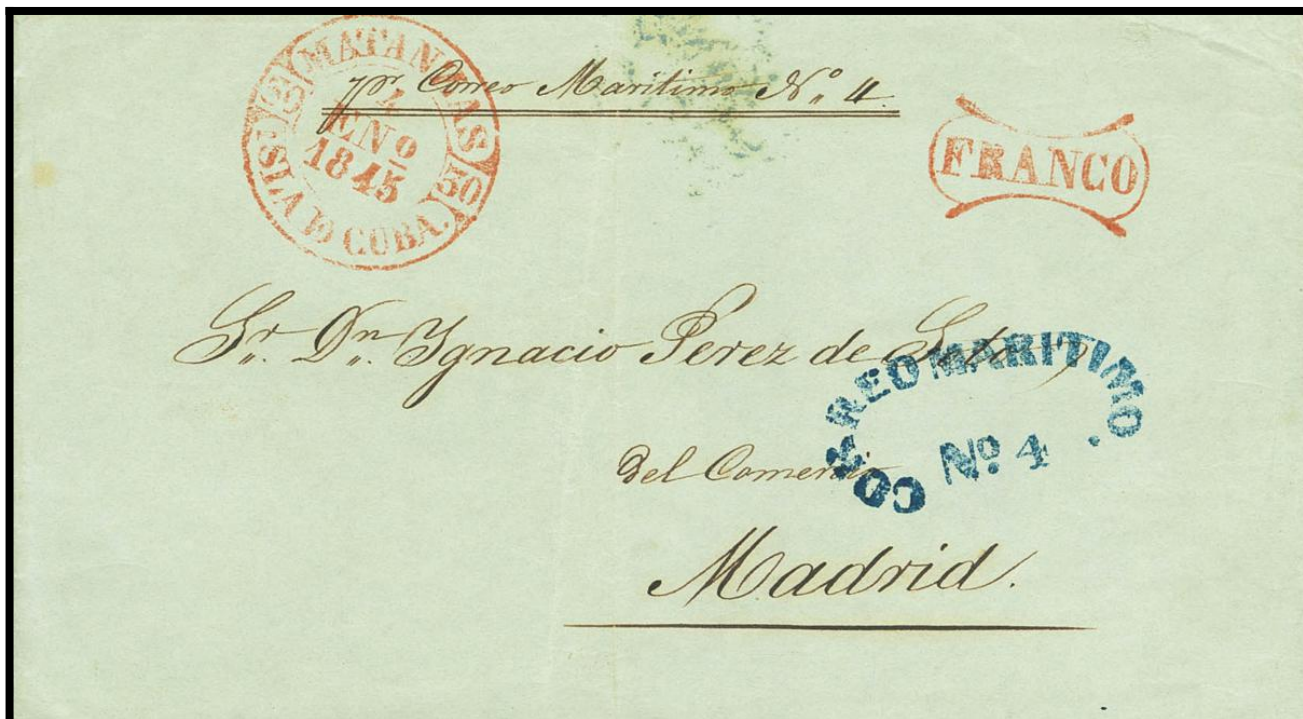 MATANZAS
ENº
1845
ISLA DE CUBA.
pr. Correo Maritimo Nº 4.
FRANCO
Sr. Dn. Ygnacio Perez de Soto
CORREO MARITIMO.
Nº 4
del Comercio
Madrid.